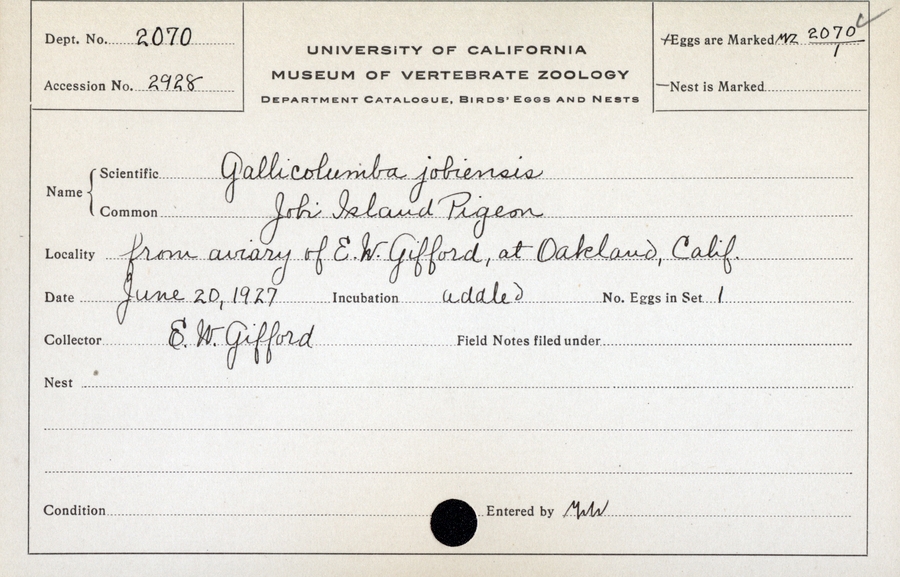 Dept. No. 2070
Accession No. 2928
UNIVERSITY OF CALIFORNIA
MUSEUM OF VERTEBRATE ZOOLOGY
DEPARTMENT CATALOGUE, BIRDS' EGGS AND NESTS
Eggs are Marked MVZ 2070/1
Nest is Marked
Name
Scientific Gallicolumba jobiensis
Common Jobi Island Pigeon
Locality from aviary of E.W. Gifford, at Oakland, Calif.
Date June 20, 1927 Incubation addled No. Eggs in Set 1
Collector E. W. Gifford Field Notes filed under
Nest
Condition Entered by